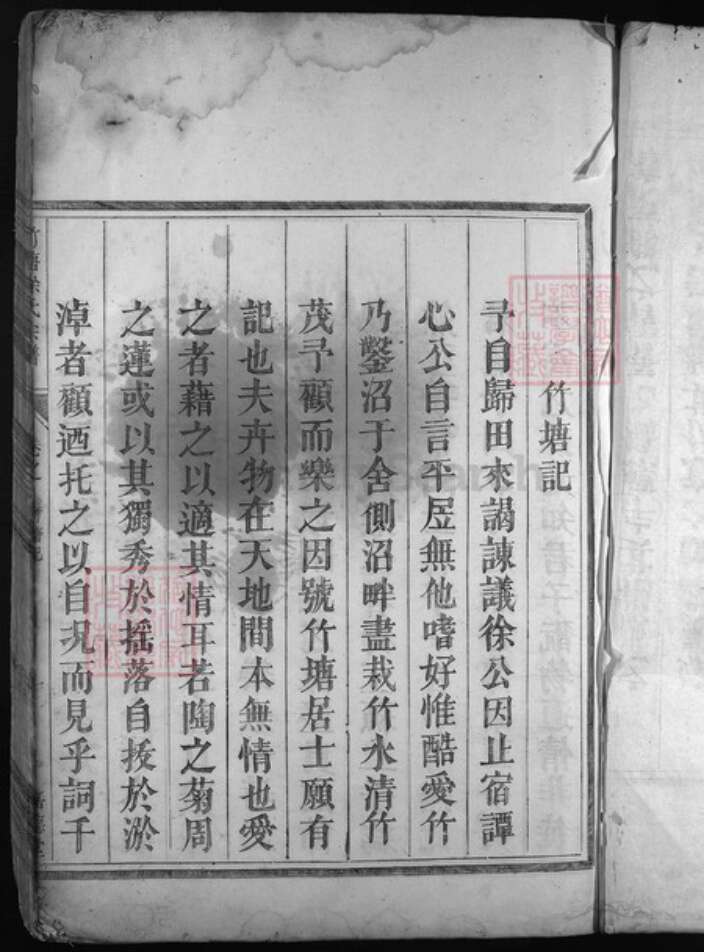 竹塘記
予自歸田來謁諫議徐公因止宿譚
心公自言平居無他嗜好惟酷愛竹
乃鑿沼于舍側沼畔盡栽竹水清竹
茂予顧而樂之因號竹塘居士願有
記也夫卉物在天地間本無情也愛
之者藉之以適其情耳若陶之菊周
之蓮或以其獨秀於搖落自拔於淤
淖者顧迺托之以自況而見乎詞千
竹塘徐氏宗譜